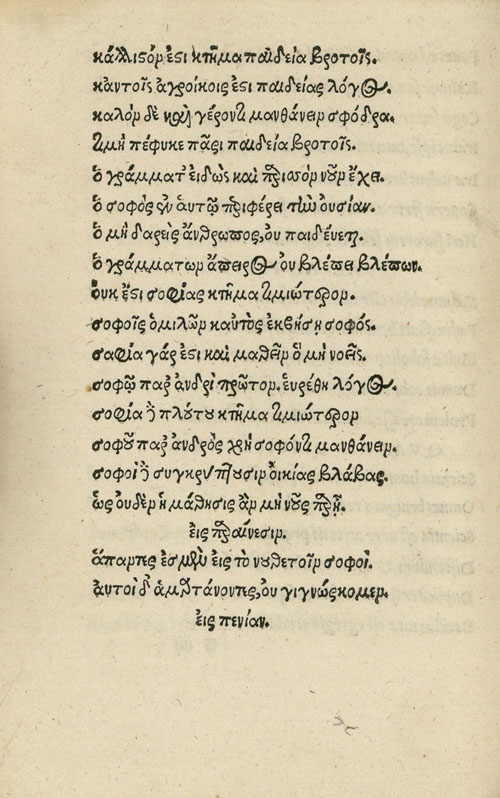 κάλλιστόν ἐστι κτῆμα παιδεία βροτοῖς.
κἀν τοῖς ἀγροίκοις ἐστὶ παιδείας λόγος.
καλὸν δὲ καὶ γέροντι μανθάνειν σφόδρα.
τιμὴ πέφυκε πᾶσι παιδεία βροτοῖς.
ὁ γράμματ' εἰδὼς καὶ περισσὸν νοῦν ἔχει.
ὁ σοφὸς ἐν αὑτῷ περιφέρει τὴν οὐσίαν.
ὁ μὴ δαρεὶς ἄνθρωπος, οὐ παιδεύεται.
ὁ γράμματων ἄπειρος οὐ βλέπει βλέπων.
οὐκ ἔστι σοφίας κτῆμα τιμιώτερον.
σοφοῖς ὁμιλῶν καυτὸς ἐκβήσῃ σοφός.
σαφία γάρ ἐστι καὶ μαθεῖν ὃ μὴ νοεῖς.
σοφῷ παρ' ἀνδρὶ πρῶτον. εὑρέθη λόγος.
σοφία δὲ πλούτου κτῆμα τιμιώτερον
σοφοῦ παρ' ἀνδρὸς χρὴ σοφόν τι μανθάνειν.
σοφοὶ δὲ συγκρύπτουσιν οἰκίας βλάβας.
ὡς οὐδὲν ἡ μάθησις ἂν μὴ νοῦς παρῇ.
εἰς παραίνεσιν.
ἅπαντες ἐσμὲν εἰς τὸ νουθετεῖν σοφοὶ.
αὐτοὶ δ' ἁμαρτάνοντες, οὐ γιγνώσκομεν.
εἰς πενίαν.